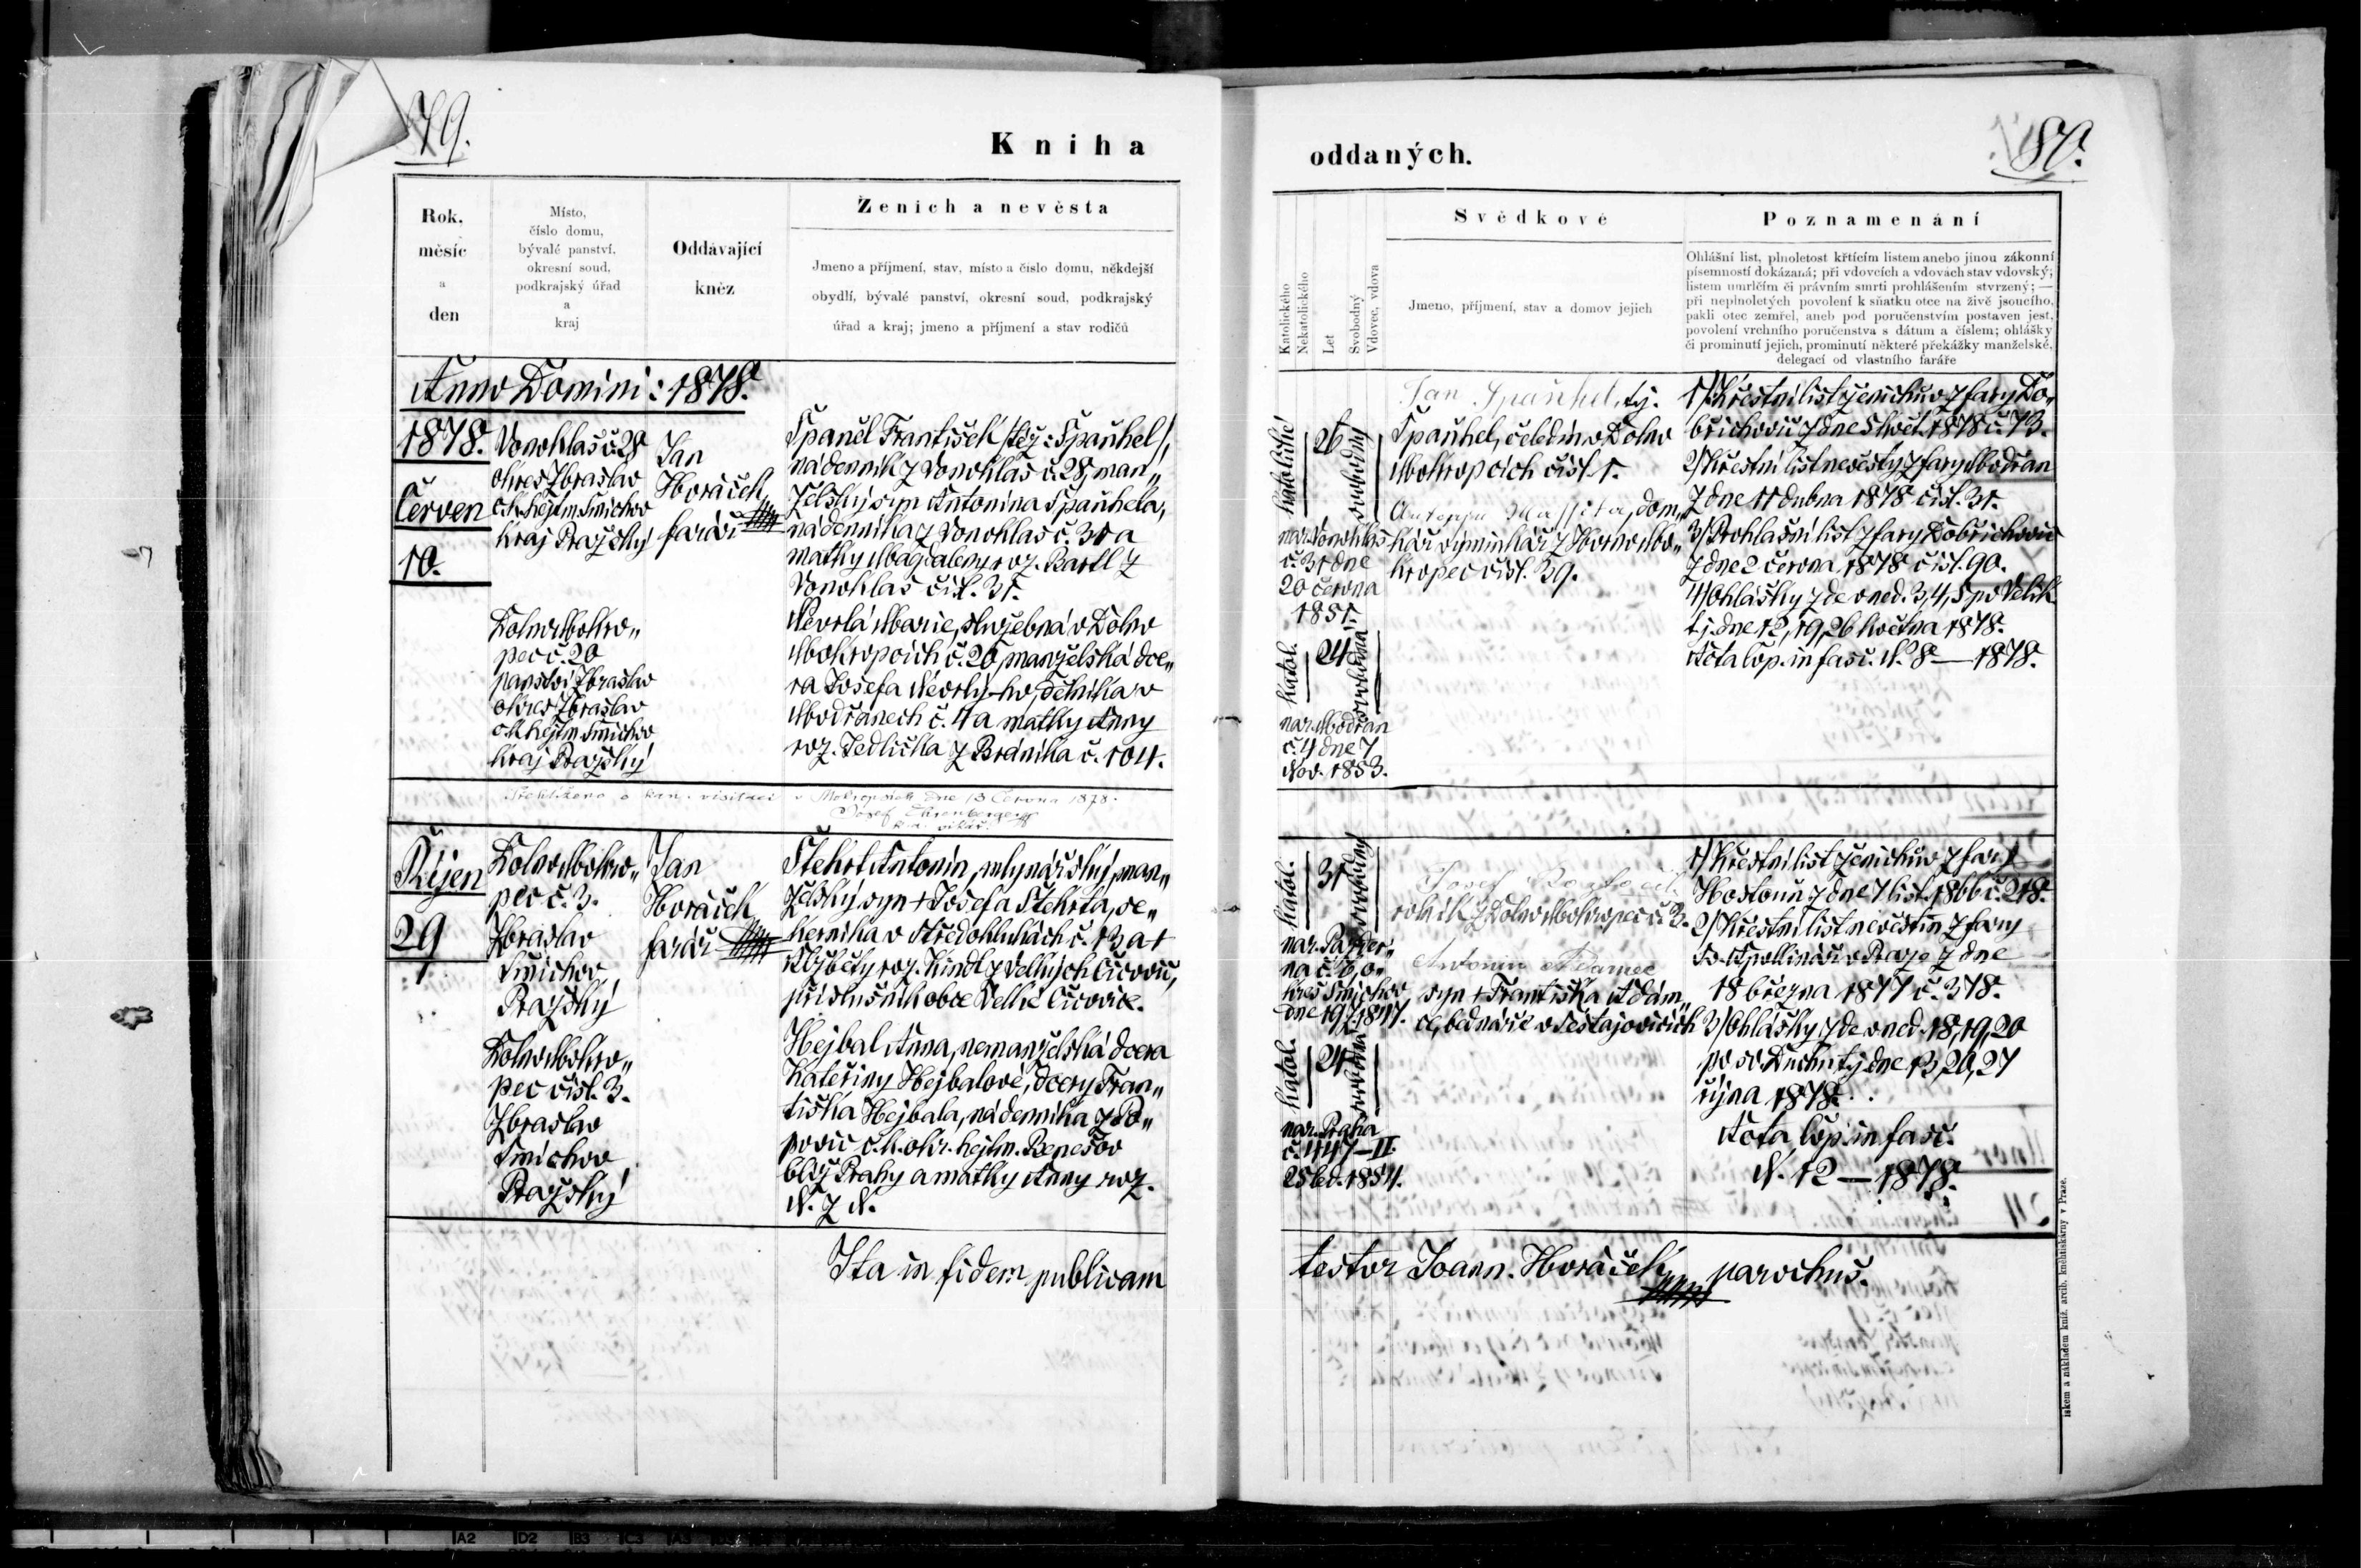 79.
Kniha
Rok,
měsíc
a
den
Místo,
číslo domu,
bývalé panství,
okresní soud,
podkrajský úřad
a
kraj
Oddávající
kněz
Ženich a nevěsta
Jmeno a příjmení, stav, místo a číslo domu, někdejší
obydlí, bývalé panství, okresní soud, podkrajský
úřad a kraj; jmeno a příjmení a stav rodičů
Anno Domini: 1878.
1878.
Červen
10.
Vonoklas č. 28
okres Zbraslav
c.k. hejtm. Smíchov
kraj Pražský
Jan
Horáček
farář
Španěl František /též: Španhel/,
nádenník z Vonoklas č. 28, man„
želský syn Antonína Španhela,
nádenníka z Vonoklas č. 31 a
matky Magdaleny roz. Bartl z
Vonoklas čísl. 31.
Dolno Mokro„
pec č. 20
panství Zbraslav
okres Zbraslav
c.k. hejtm. Smíchov
kraj Pražský
Nevrlá Marie, služebná v Dolno
Mokropcích č. 20, manželská dce„
ra Josefa Nevrlý-ho, dělníka v
Modřanech č. 4 a matky Anny
roz. Jedlička z Bráníka č. 104.
Přehlíženo o kan. visitaci v Mokropsích dne 13 Června 1878.
Josef Ehrenberger
vikář.
Říjen
29
Dolno Mokro„
pec č. 3.
Zbraslav
Smíchov
Pražský
Jan
Horáček
farář
Štekrt Antonín, mlynářský, man„
želský syn † Josefa Štekrta, se„
kerníka v Středoklukách č. 13 a †
Alžběty roz. Kindl z Velkých Čičovic,
příslušník obce Velké Čičovice.
Dolno Mokro„
pec čísl. 3.
Zbraslav
Smíchov
Pražský
Hejbal Anna, nemanželská dcera
Kateřiny Hejbalové, dcery Fran„
tiška Hejbala, nádenníka z Po„
povic c.k. okr. hejtm. Benešov
blíž Prahy a matky Anny roz.
N. z N.
Ita in fidem publicam
oddaných.
80.
Katolického
Nekatolického
Let
Svobodný
Vdovec, vdova
Svědkové
Jmeno, příjmení, stav a domov jejich
Poznamenání
Ohlášní list, plnoletost křtícím listem anebo jinou zákonní
písemností dokázaná; při vdovcích a vdovách stav vdovský;
listem umrlčím či právním smrti prohlášením stvrzený; —
při neplnoletých povolení k sňatku otce na živě jsoucího,
pakli otec zemřel, aneb pod poručenstvím postaven jest,
povolení vrchního poručenstva s dátum a číslem; ohlášky
či prominutí jejich, prominutí některé překážky manželské,
delegací od vlastního faráře
katolické
26
svobodný
nar. Vonoklas
č. 31 dne
20 června
1851.
Jan Španhel, tj.
Španhel, čeledín v Dolno
Mokropcích čísl. 1.
dom„
kář výminkář z Horno Mo„
kropec čísl. 39.
1/ Křestní list ženichův z fary Do„
břichovic z dne 5 květ. 1878 č. 73.
2/ Křestní list nevěsty z fary Modřan
z dne 11 dubna 1878 čísl. 31.
3/ Prohlašní list z fary Dobřichovic
z dne 2 června 1878 čísl. 90.
4/ Ohlášky zde v ned. 3, 4, 5 po Velik.
t.j. dne 12, 19, 26 května 1878.
Acta cop. in fasc. N. 8 — 1878.
katol.
24
svobodná
nar. Modřan
č. 4 dne 7
Nov. 1853.
katol.
31
svobodný
okres Smíchov
1847.
Josef
rolník z Dolno Mokropec č. 3.
Antonín Adamec
syn † Františka Adám„
ce, bednáře v Těštajovicích
1/ Křestní list ženichův z fary
Hostouň z dne 7 list. 1866 č. 218.
2/ Křestní list nevěstin z fary
Sv. Apollináře v Praze z dne
18 března 1877 č. 378.
3/ Ohlášky zde v ned. 18, 19, 20
po sv. Duchu tj. dne 13, 20, 27
října 1878.
Acta cop. in fasc.
N. 12 — 1878.
katol.
24
svobodná
nar. Praha
č. 447–II.
1854.
testor Joann. Horáček parochus.
tiskem a nákladem kníž. arcib. knihtiskárny v Praze.
A2 D2 B3 C3 A3